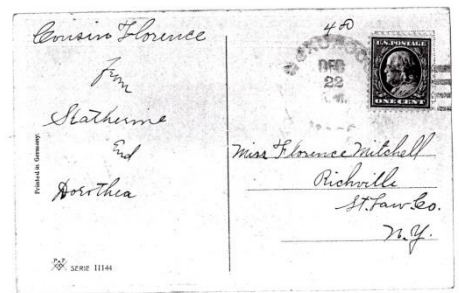 Cousin Florence
from
Katherine
End
Dorothea
Printed in Germany.
SERIE 11144
40
DEC
22
U.S. POSTAGE
ONE CENT
Miss Florence Mitchell
Richville
St. Law. Co.
N.Y.